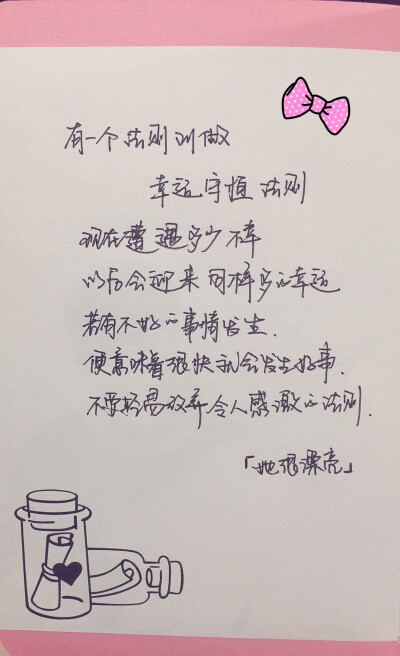 有一个法则叫做
幸运守恒法则
现在遭遇多少不幸
以后会迎来同样多的幸运
若有不好的事情发生.
便意味着很快就会发生好事.
不要轻易放弃令人感激的法则.
「她很漂亮」